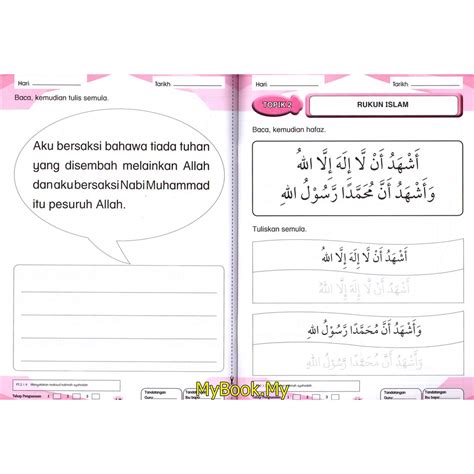 Hari: Tarikh:
Baca, kemudian tulis semula.
Aku bersaksi bahawa tiada tuhan
yang disembah melainkan Allah
dan aku bersaksi Nabi Muhammad
itu pesuruh Allah.
Tahap Penguasaan 1 2 3
Tandatangan
Guru:
Tandatangan
Ibu bapa:
Hari: Tarikh:
TOPIK 2 RUKUN ISLAM
Baca, kemudian hafaz.
أَشْهَدُ أَنْ لَّا إِلَهَ إِلَّا اللهُ
وَأَشْهَدُ أَنَّ مُحَمَّدًا رَّسُوْلُ اللهِ
Tuliskan semula.
أَشْهَدُ أَنْ لَّا إِلَهَ إِلَّا اللهُ
أَشْهَدُ أَنْ لَّا إِلَهَ إِلَّا اللهُ
وَأَشْهَدُ أَنَّ مُحَمَّدًا رَّسُوْلُ اللهِ
وَأَشْهَدُ أَنَّ مُحَمَّدًا رَّسُوْلُ اللهِ
Tahap Penguasaan 1 2 3
Tandatangan
Guru:
Tandatangan
Ibu bapa:
MyBook.My